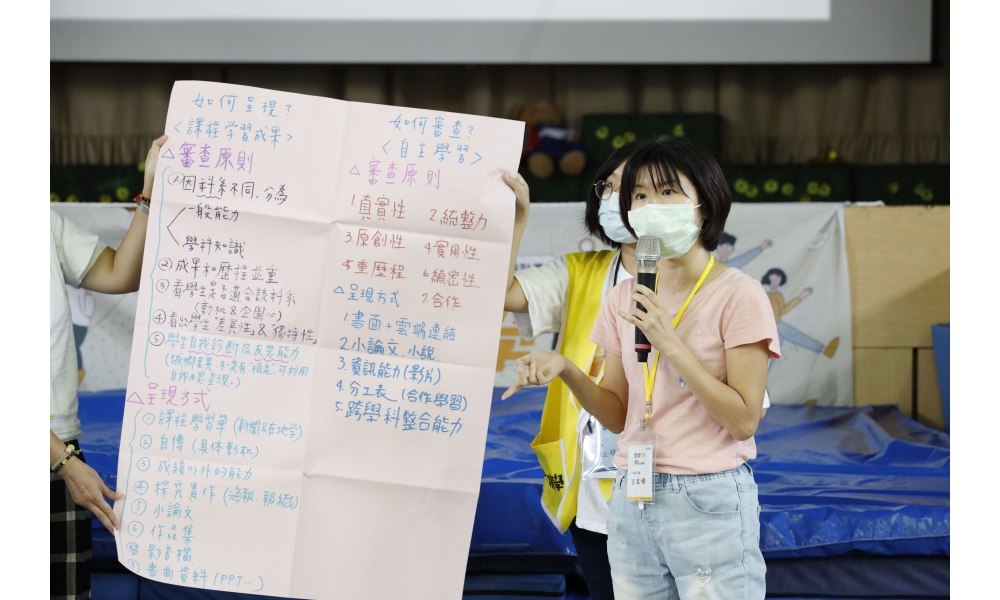 如何呈現?
<課程学習成果>
△審查原則
⑴因科系不同,分為
一般能力
學科知識
②成果和歷程並重
③看學生是否適合該科系
(動机&企圖心)
④看出學生"差異性"&"獨特性"
⑤學生自我診断及反思能力
△呈現方式
①課程學習單(新聞&在地学)
②自傳(具体動机)
③成績以外的能力
④探究實作(海報.報紙)
⑤小論文
⑥作品集
影音檔
書面資料(PPT…)
如何審查?
<自主學習>
△審查原則
1.真實性 2.統整力
3.原創性 4.實用性
5.重歷程 6.縝密性
△呈現方式 7.合作
1.書面+雲端連結
2.小論文.小說
3.資訊能力(影片)
4.分工表_(合作學習)
5.跨學科整合能力